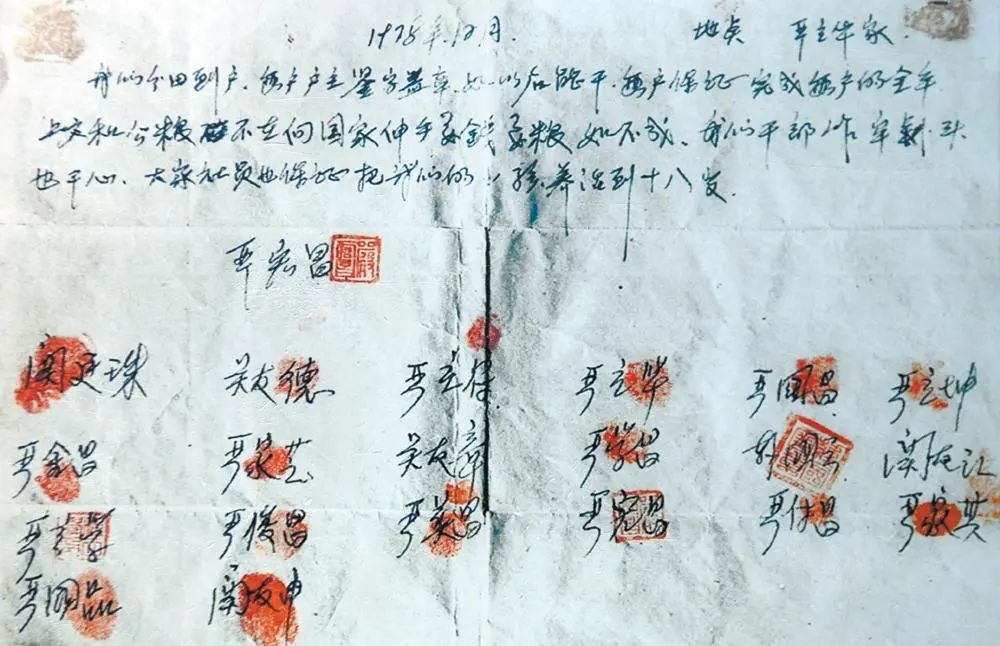 1978年12月. 地点 严立华家.
我们分田到户.每户户主鉴字盖章.如以后能干.每户保证完成每户的全年
上交和公粮不在向国家伸手要钱要粮如不成.我们干部作牢刹头
也干心.大家社员也保证把我们的小孩养活到十八岁.
严宏昌
关廷珠 关友德 严立符 严立华 严国昌 严立坤
严金昌 严家芝 关友章 严学昌 韩国云 关友江
严立学 严俊昌 严美昌 严宏昌 严付昌 严家其
严国品 关友申